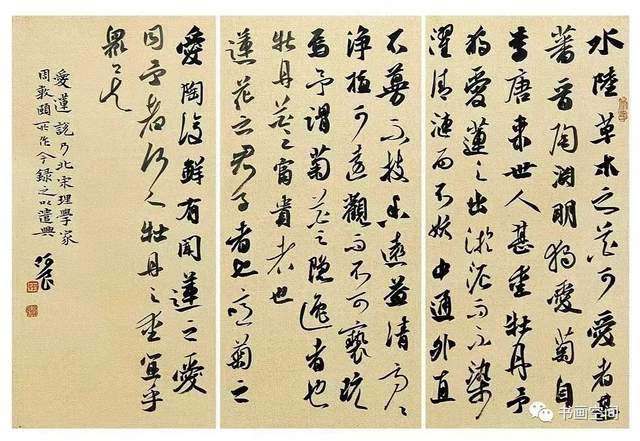 水陸草木之花可愛者甚
蕃晉陶淵明獨愛菊自
李唐來世人甚重牡丹予
獨愛蓮之出淤泥而不染
濯清漣而不妖中通外直
不蔓不枝香遠益清亭々
淨植可遠觀而不可褻玩
焉予謂菊花之隱逸者也
牡丹花之富貴者也
蓮花之君子者也噫菊之
愛陶後鮮有聞蓮之愛
同予者何人牡丹之愛宜乎
眾矣
愛蓮說乃北宋理學家
周敦頤所作今錄之以遣興
书画空间